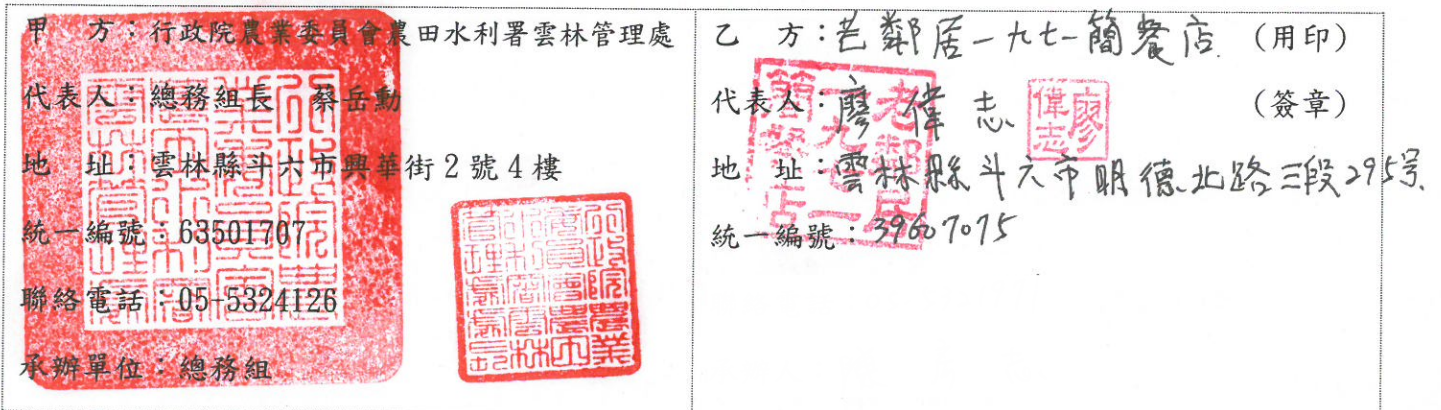 甲 方：行政院農業委員會農田水利署雲林管理處
代表人：總務組長 蔡岳勳
地 址：雲林縣斗六市興華街2號4樓
統一編號：63501707
聯絡電話：05-5324126
承辦單位：總務組
乙 方：老鄰居一九七一簡餐店 (用印)
代表人：廖偉志 (簽章)
地 址：雲林縣斗六市明德北路三段295号
統一編號：39607075
老鄰居
一九七一
簡餐店
廖
偉志